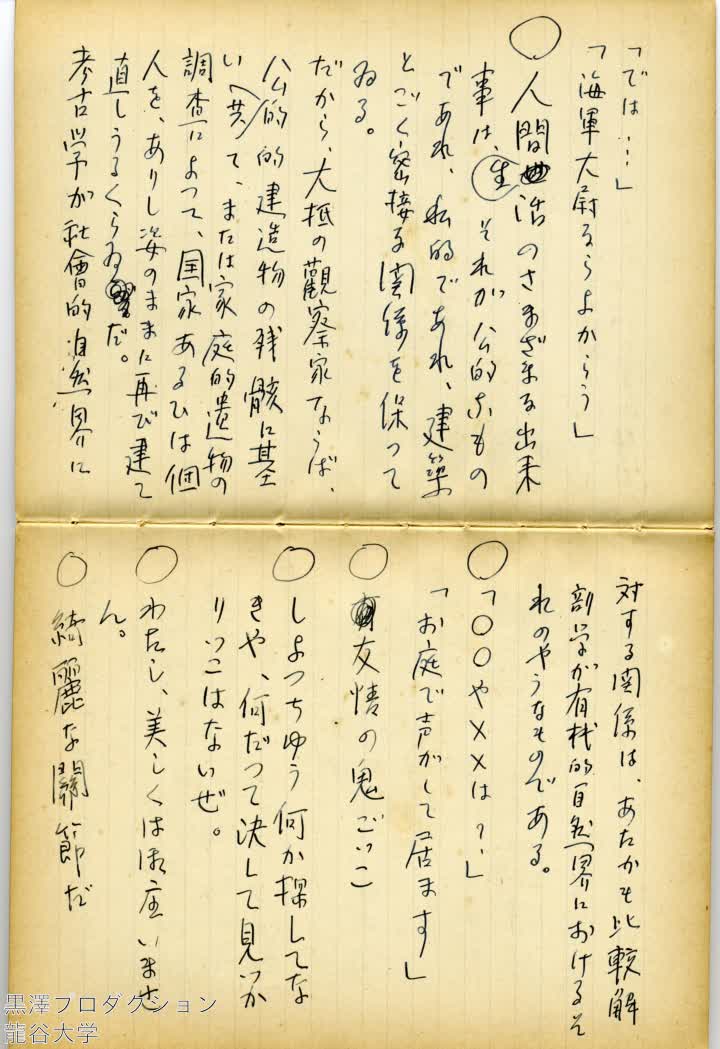 「では…」
「海軍大尉ならよからう」
○人間生活のさまざまな出来
事は、それが公的なもの
であれ、私的であれ、建築
とごく密接な関係を保って
ゐる。
だから、大抵の觀察家ならば、
公的建造物の残骸に基
いて、または家庭的遺物の
調査によつて、国家あるひは個
人を、ありし姿のままに再び建て
直しうるくらゐだ。
考古学が社會的自然界に
対する関係は、あたかも比較解
剖学が有机的自然界におけるそ
れのやうなものである。
○「○○や××は？」
「お庭で声がして居ます」
○友情の鬼ごっこ
○しよつちゆう何か探してな
きや、何だつて決して見いか
りつこはないぜ。
○わたし、美しくはほ座いませ
ん。
○綺麗な關節だ
黒澤プロダクション
龍谷大学